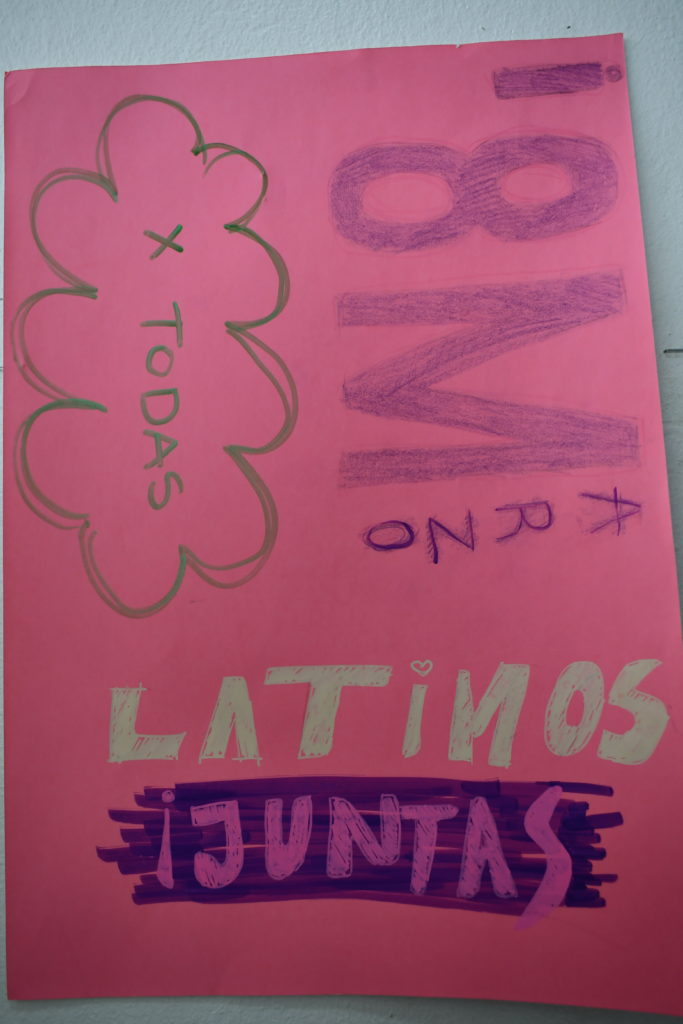 ¡8M
ARZO
X TODAS
LATiMOS
¡JUNTAS